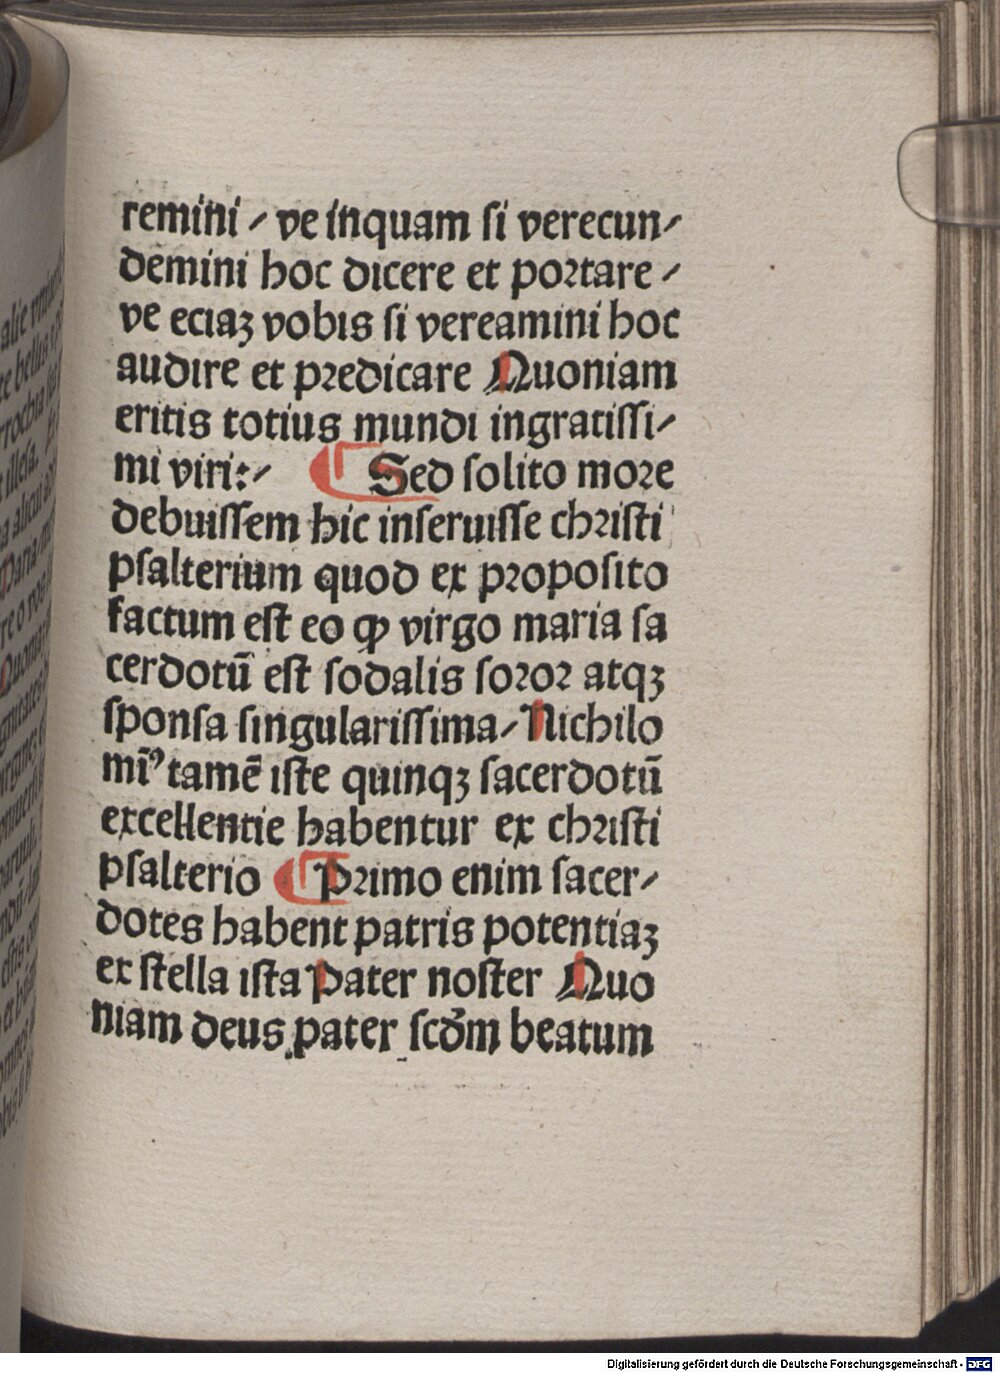 remini / ve inquam si verecun/
demini hoc dicere et portare /
ve eciaꝫ vobis si vereamini hoc
audire et predicare Quoniam
eritis totius mundi ingratissi/
mi viri:/ ⸿ Sed solito more
debuissem hic inseruisse christi
psalterium quod ex proposito
factum est eo ꝙ virgo maria sa
cerdotū est sodalis soror atqꝫ
sponsa singularissima/ Nichilo
mī⁹ tamē iste quinqꝫ sacerdotū
excellentie habentur ex christi
psalterio ⸿ Primo enim sacer/
dotes habent patris potentiaꝫ
ex stella ista Pater noster Quo
niam deus pater scd̄m beatum
Digitalisierung gefördert durch die Deutsche Forschungsgemeinschaft - DFG